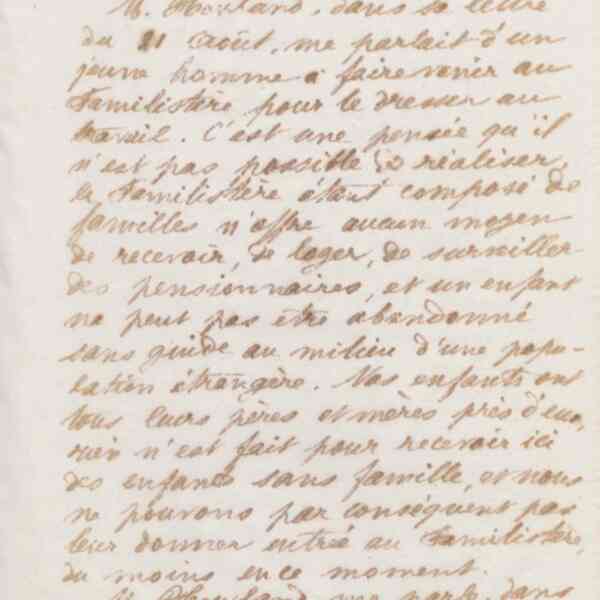 M. Howland, dans sa lettre
du 21 Août, me parlait d'un
jeune homme à faire venir au
Familistère pour le dresser au
travail. C'est une pensée qu'il
n'est pas possible de réaliser,
le Familistère étant composé de
familles n'offre aucun moyen
de recevoir, de loger, de surveiller
des pensionnaires, et un enfant
ne peut pas être abandonné
sans guide au milieu d'une popu-
lation étrangère. Nos enfants ont
tous leurs pères et mères près d'eux,
rien n'est fait pour recevoir ici
des enfants sans famille, et nous
ne pouvons par conséquent pas
leur donner entrée au Familistère,
du moins en ce moment.
M. Howland me parle, dans